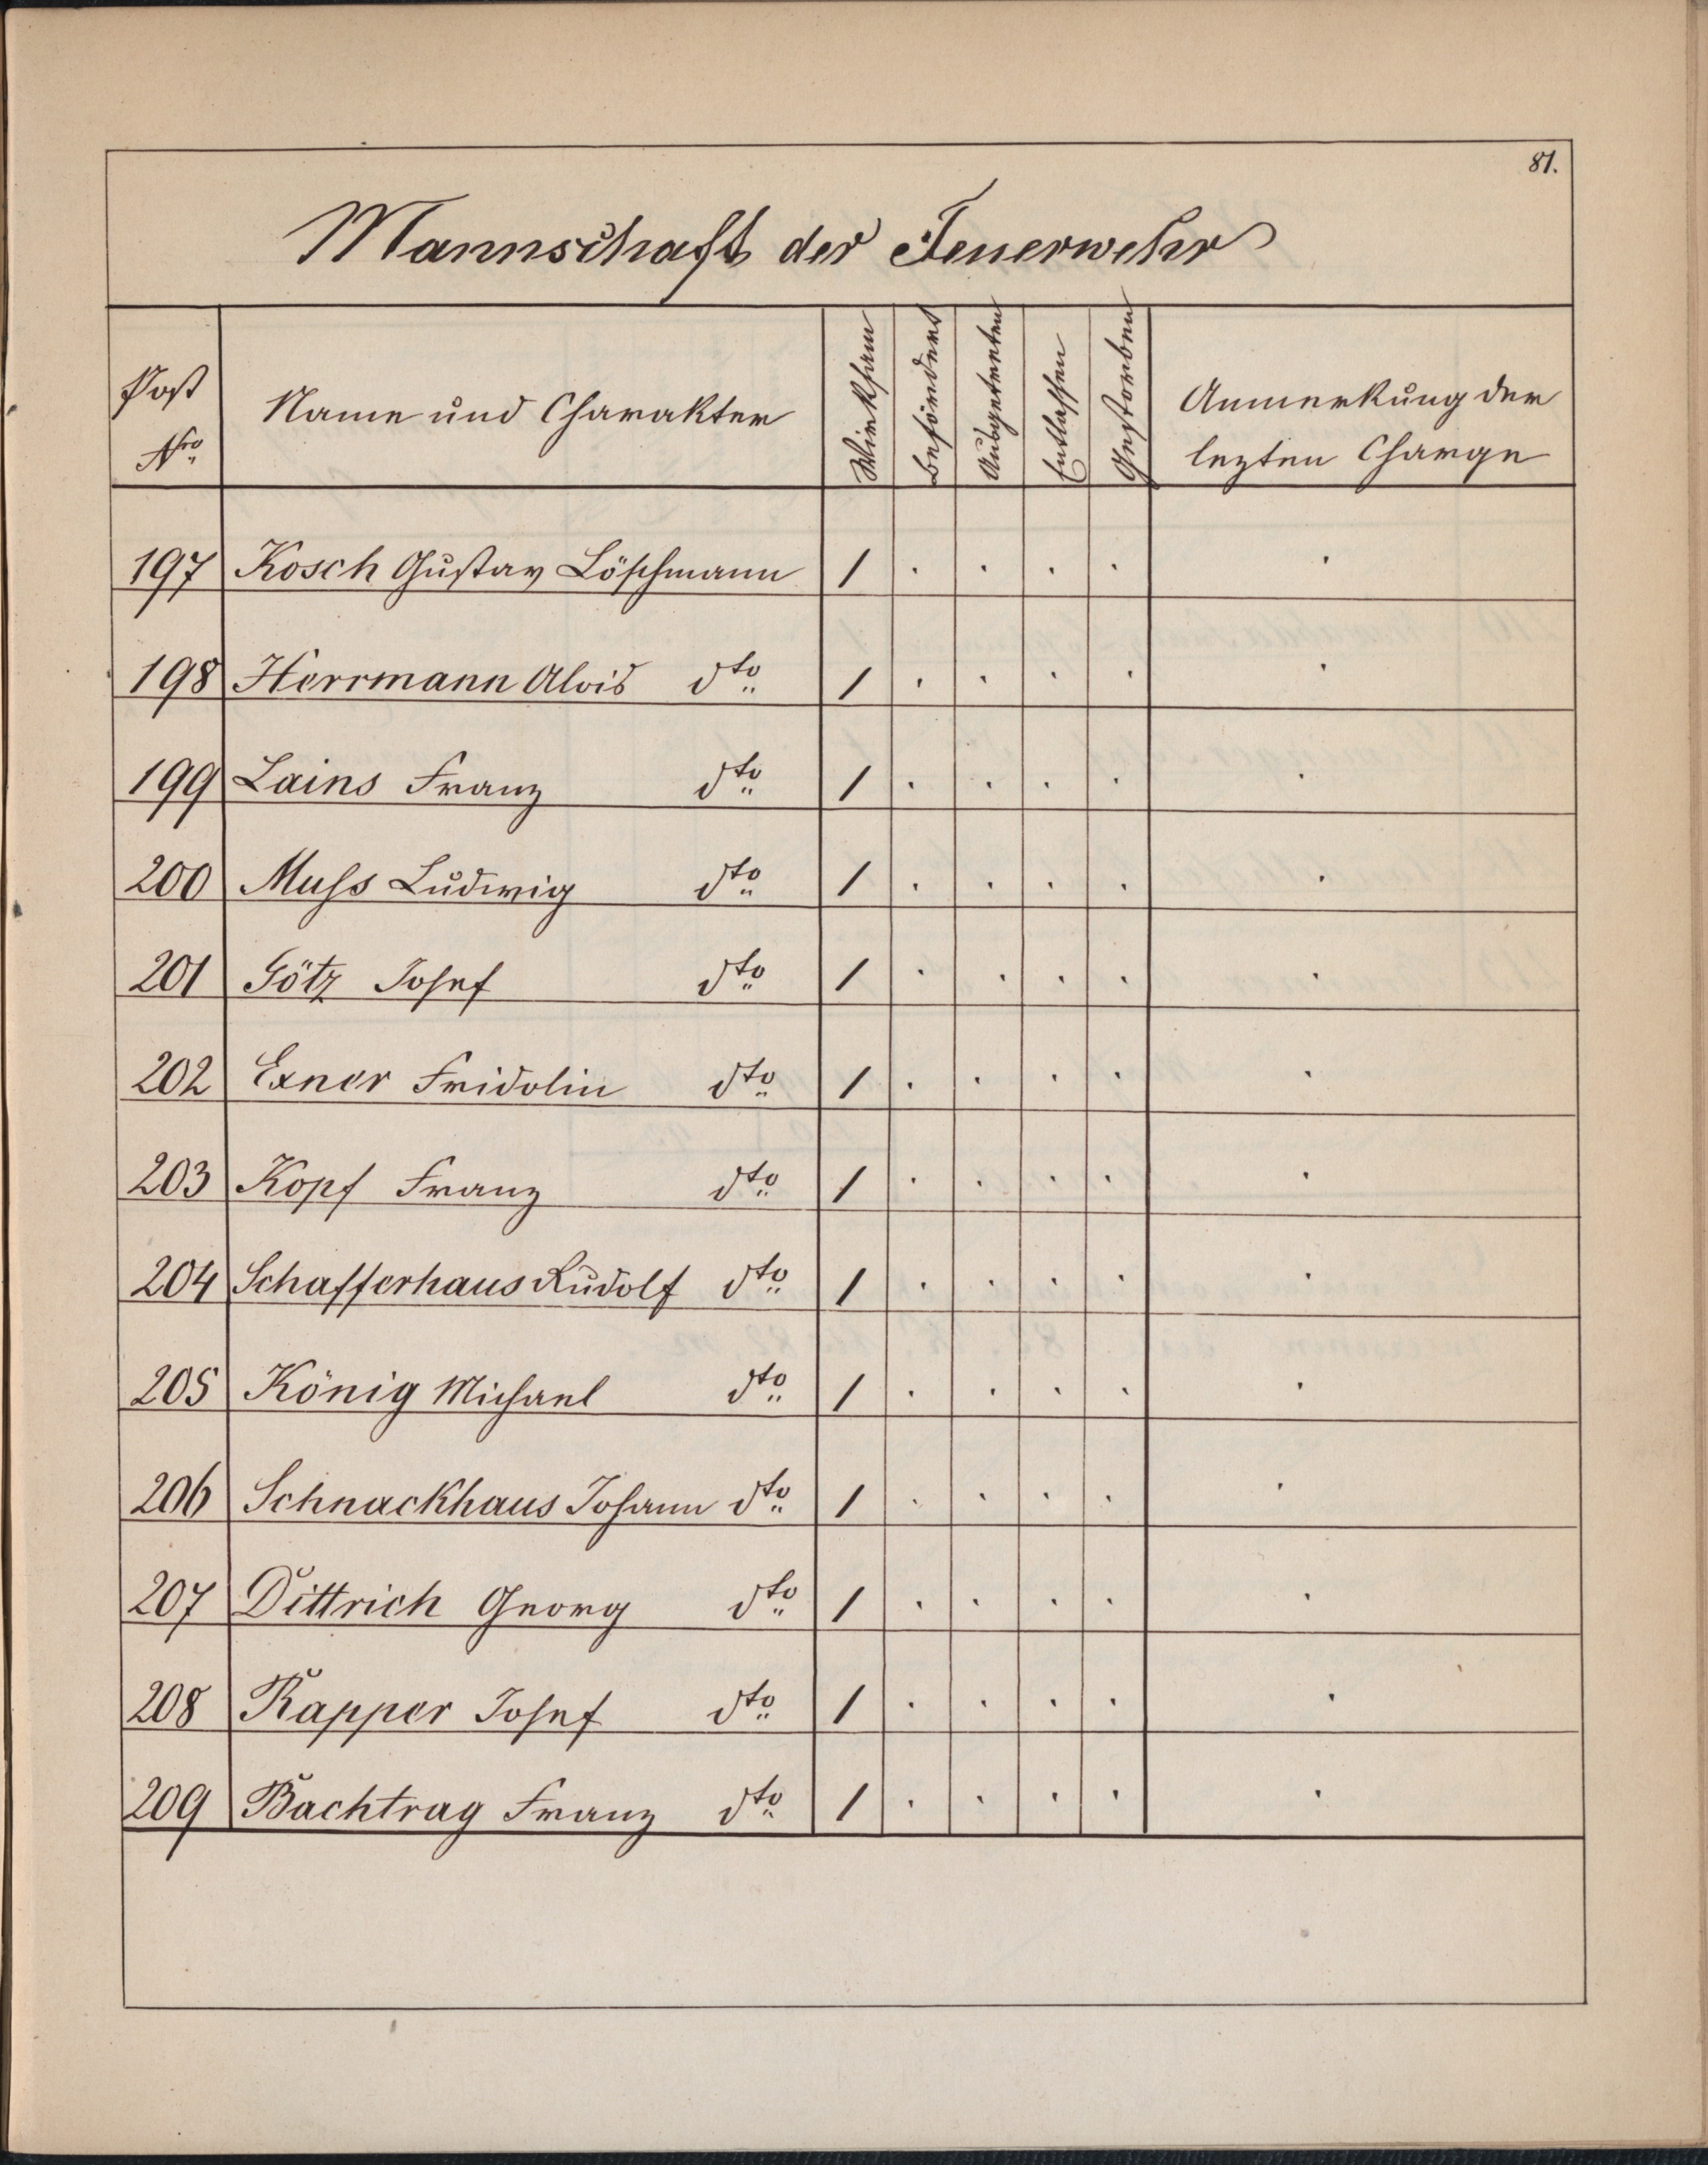 81.
Mannschaft der Feuerwehr
Post Nro Name und Charakter Wirksam befördert Ausgetreten Entlassen Gestorben Anmerkung der lezten Charge
197 Kosch Gustav Löschmann 1 . . . . .
198 Herrmann Alois dto 1 . . . . .
199 Lains Franz dto 1 . . . . .
200 Muss Ludwig dto 1 . . . . .
201 Götz Josef dto 1 . . . . .
202 Exner Fridolin dto 1 . . . . .
203 Kopf Franz dto 1 . . . . .
204 Schafferhaus Rudolf dto 1 . . . . .
205 König Michael dto 1 . . . . .
206 Schnackhaus Johann dto 1 . . . . .
207 Dittrich Georg dto 1 . . . . .
208 Rapper Josef dto 1 . . . . .
209 Bachtrag Franz dto 1 . . . . .